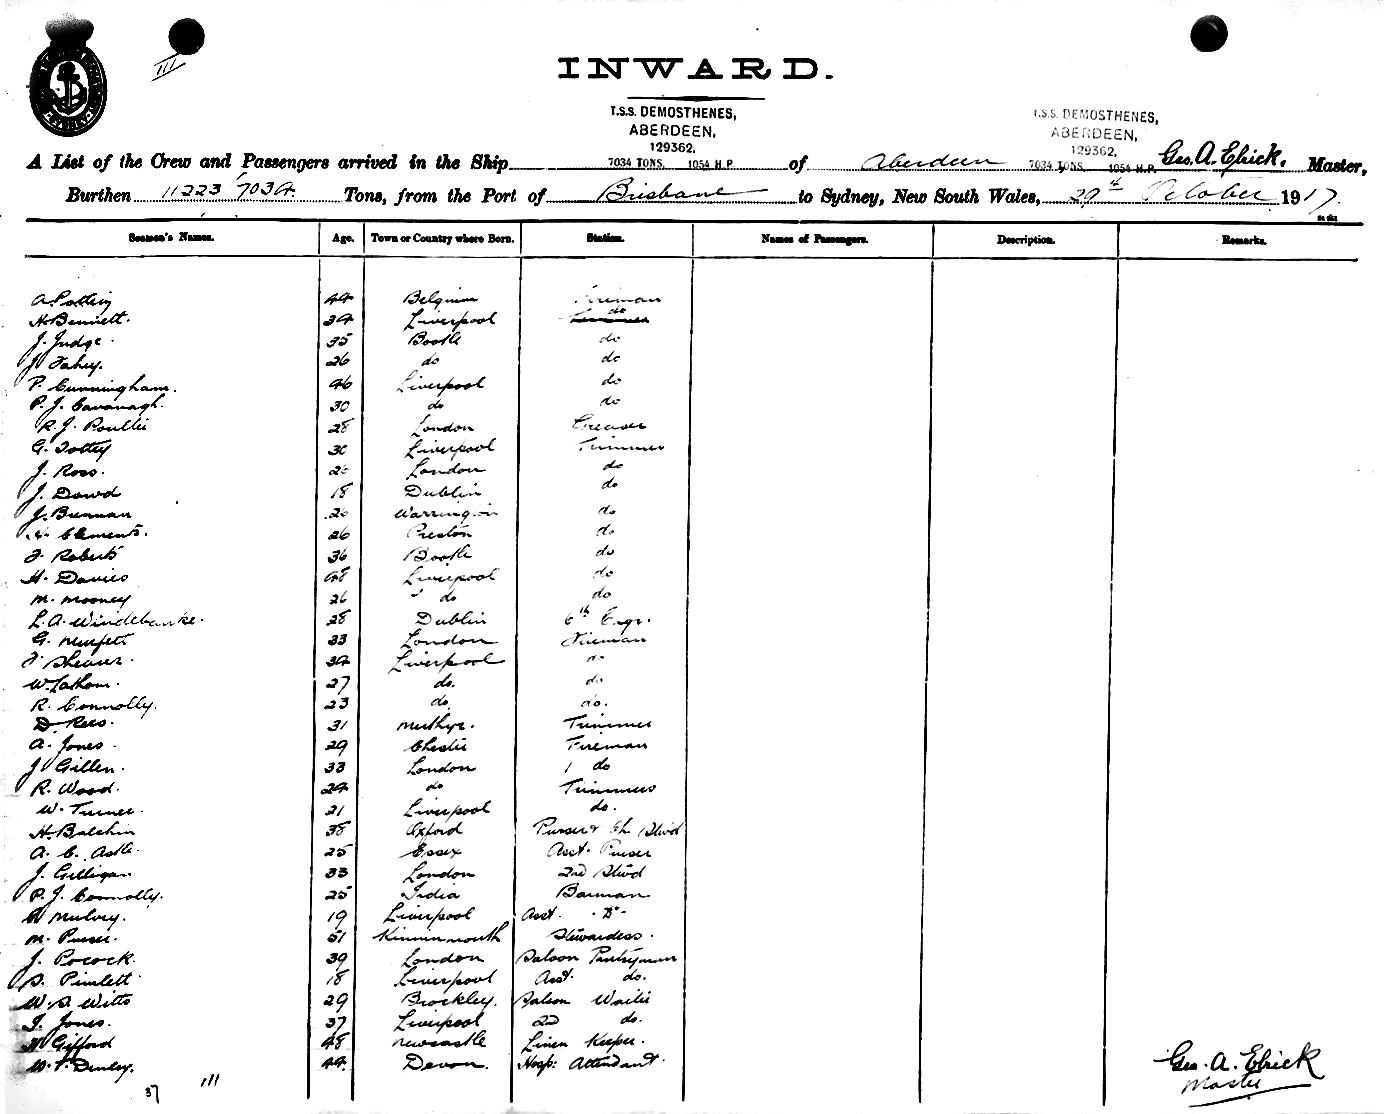 III
INWARD.
T.S.S. DEMOSTHENES,
ABERDEEN,
129362,
7034 TONS, 1054 H.P.
T.S.S. DEMOSTHENES,
ABERDEEN,
129362
7034 TONS, 1054 H.P.
A List of the Crew and Passengers arrived in the Ship of Aberdeen Geo. A. Ebrick. Master,
Burthen 11223 7034 Tons, from the Port of Brisbane to Sydney, New South Wales, 29th October 1917.
Seamen's Names. Age. Town or Country where Born. Station. Names of Passengers. Description. Remarks.
44 Belgium Fireman
H. Bennett. 34 Liverpool do
J. Judge. 35 Bootle do
J. Fahey. 26 do do
P. Cunningham. 46 Liverpool do
P. J. Cavanagh. 30 do do
R. J. 28 London Greaser
G. Tottey 30 Liverpool Trimmer
J. Ross. 20 London do
J. Dowd 18 Dublin do
J. Brennan 20 Warrington do
Clements. 26 Preston do
F. Roberts 36 Bootle do
H. Davies 48 Liverpool do
M. Mooney 26 do do
L. A. Windebanke. 28 Dublin 6th Engr.
G. Murfett 33 London Fireman
F. Shearer. 34 Liverpool do
W. Latham. 27 do. do
R. Connolly. 23 do. do.
D. Rees. 31 Merthyr. Trimmer
A. Jones. 29 Chester Fireman
J. Gillen. 33 London do
R. Wood. 24 do Trimmers
W. Turner. 21 Liverpool do.
H. Balchin 38 Oxford Purser & Ch. Stwd
A. C. Astle. 25 Essex Asst. Purser
J. Gilligan 33 London 2nd Stwd
P. J. Connolly. 25 India Barman
Mulvey. 19 Liverpool Asst. -Do-
M. Purser. 51 Kinninmonth Stewardess.
J. Pocock. 39 London Saloon Pantryman
S. Pimlett 18 Liverpool Asst. do.
W. S. Witts 29 Brockley. Saloon Waiter
J. Jones. 37 Liverpool 2nd do.
H. Gifford 48 Newcastle Linen Keeper.
W. F. Denley. 44 Devon. Hosp: Attendant.
Geo. A. Ebrick
Master
37 III